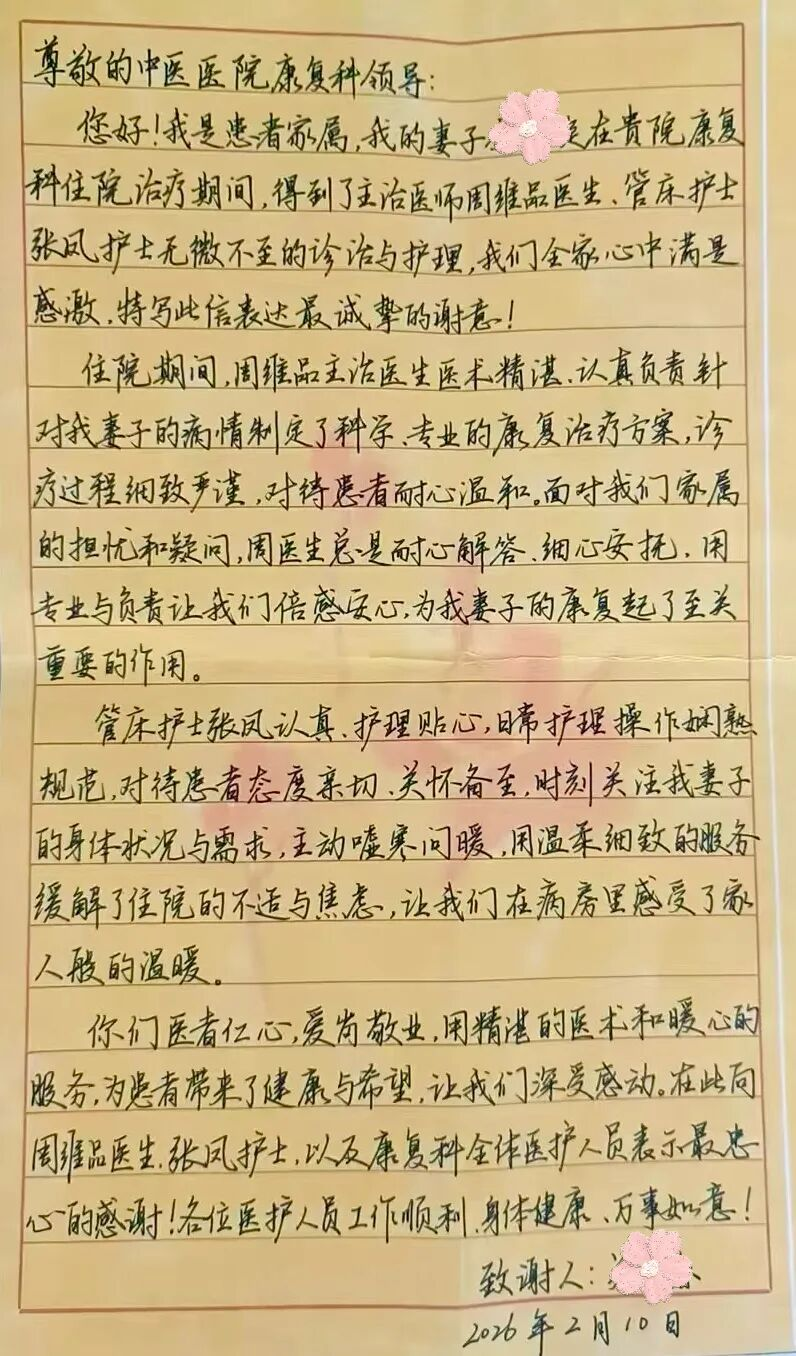 尊敬的中医医院康复科领导:
您好!我是患者家属,我的妻子在贵院康复
科住院治疗期间,得到了主治医师周维品医生、管床护士
张凤护士无微不至的诊治与护理,我们全家心中满是
感激、特写此信表达最诚挚的谢意!
住院期间,周维品主治医生医术精湛、认真负责,针
对我妻子的病情制定了科学、专业的康复治疗方案,诊
疗过程细致严谨,对待患者耐心温和。面对我们家属
的担忧和疑问,周医生总是耐心解答、细心安抚、用
专业与负责让我们倍感安心,为我妻子的康复起了至关
重要的作用。
管床护士张凤认真、护理贴心,日常护理操作娴熟
规范,对待患者态度亲切、关怀备至,时刻关注我妻子
的身体状况与需求,主动嘘寒问暖,用温柔细致的服务
缓解了住院的不适与焦虑,让我们在病房里感受了家
人般的温暖。
你们医者仁心,爱岗敬业,用精湛的医术和暖心的
服务,为患者带来了健康与希望,让我们深受感动。在此向
周维品医生、张凤护士,以及康复科全体医护人员表示最忠
心的感谢!各位医护人员工作顺利、身体健康、万事如意!
致谢人:
2026年2月10日